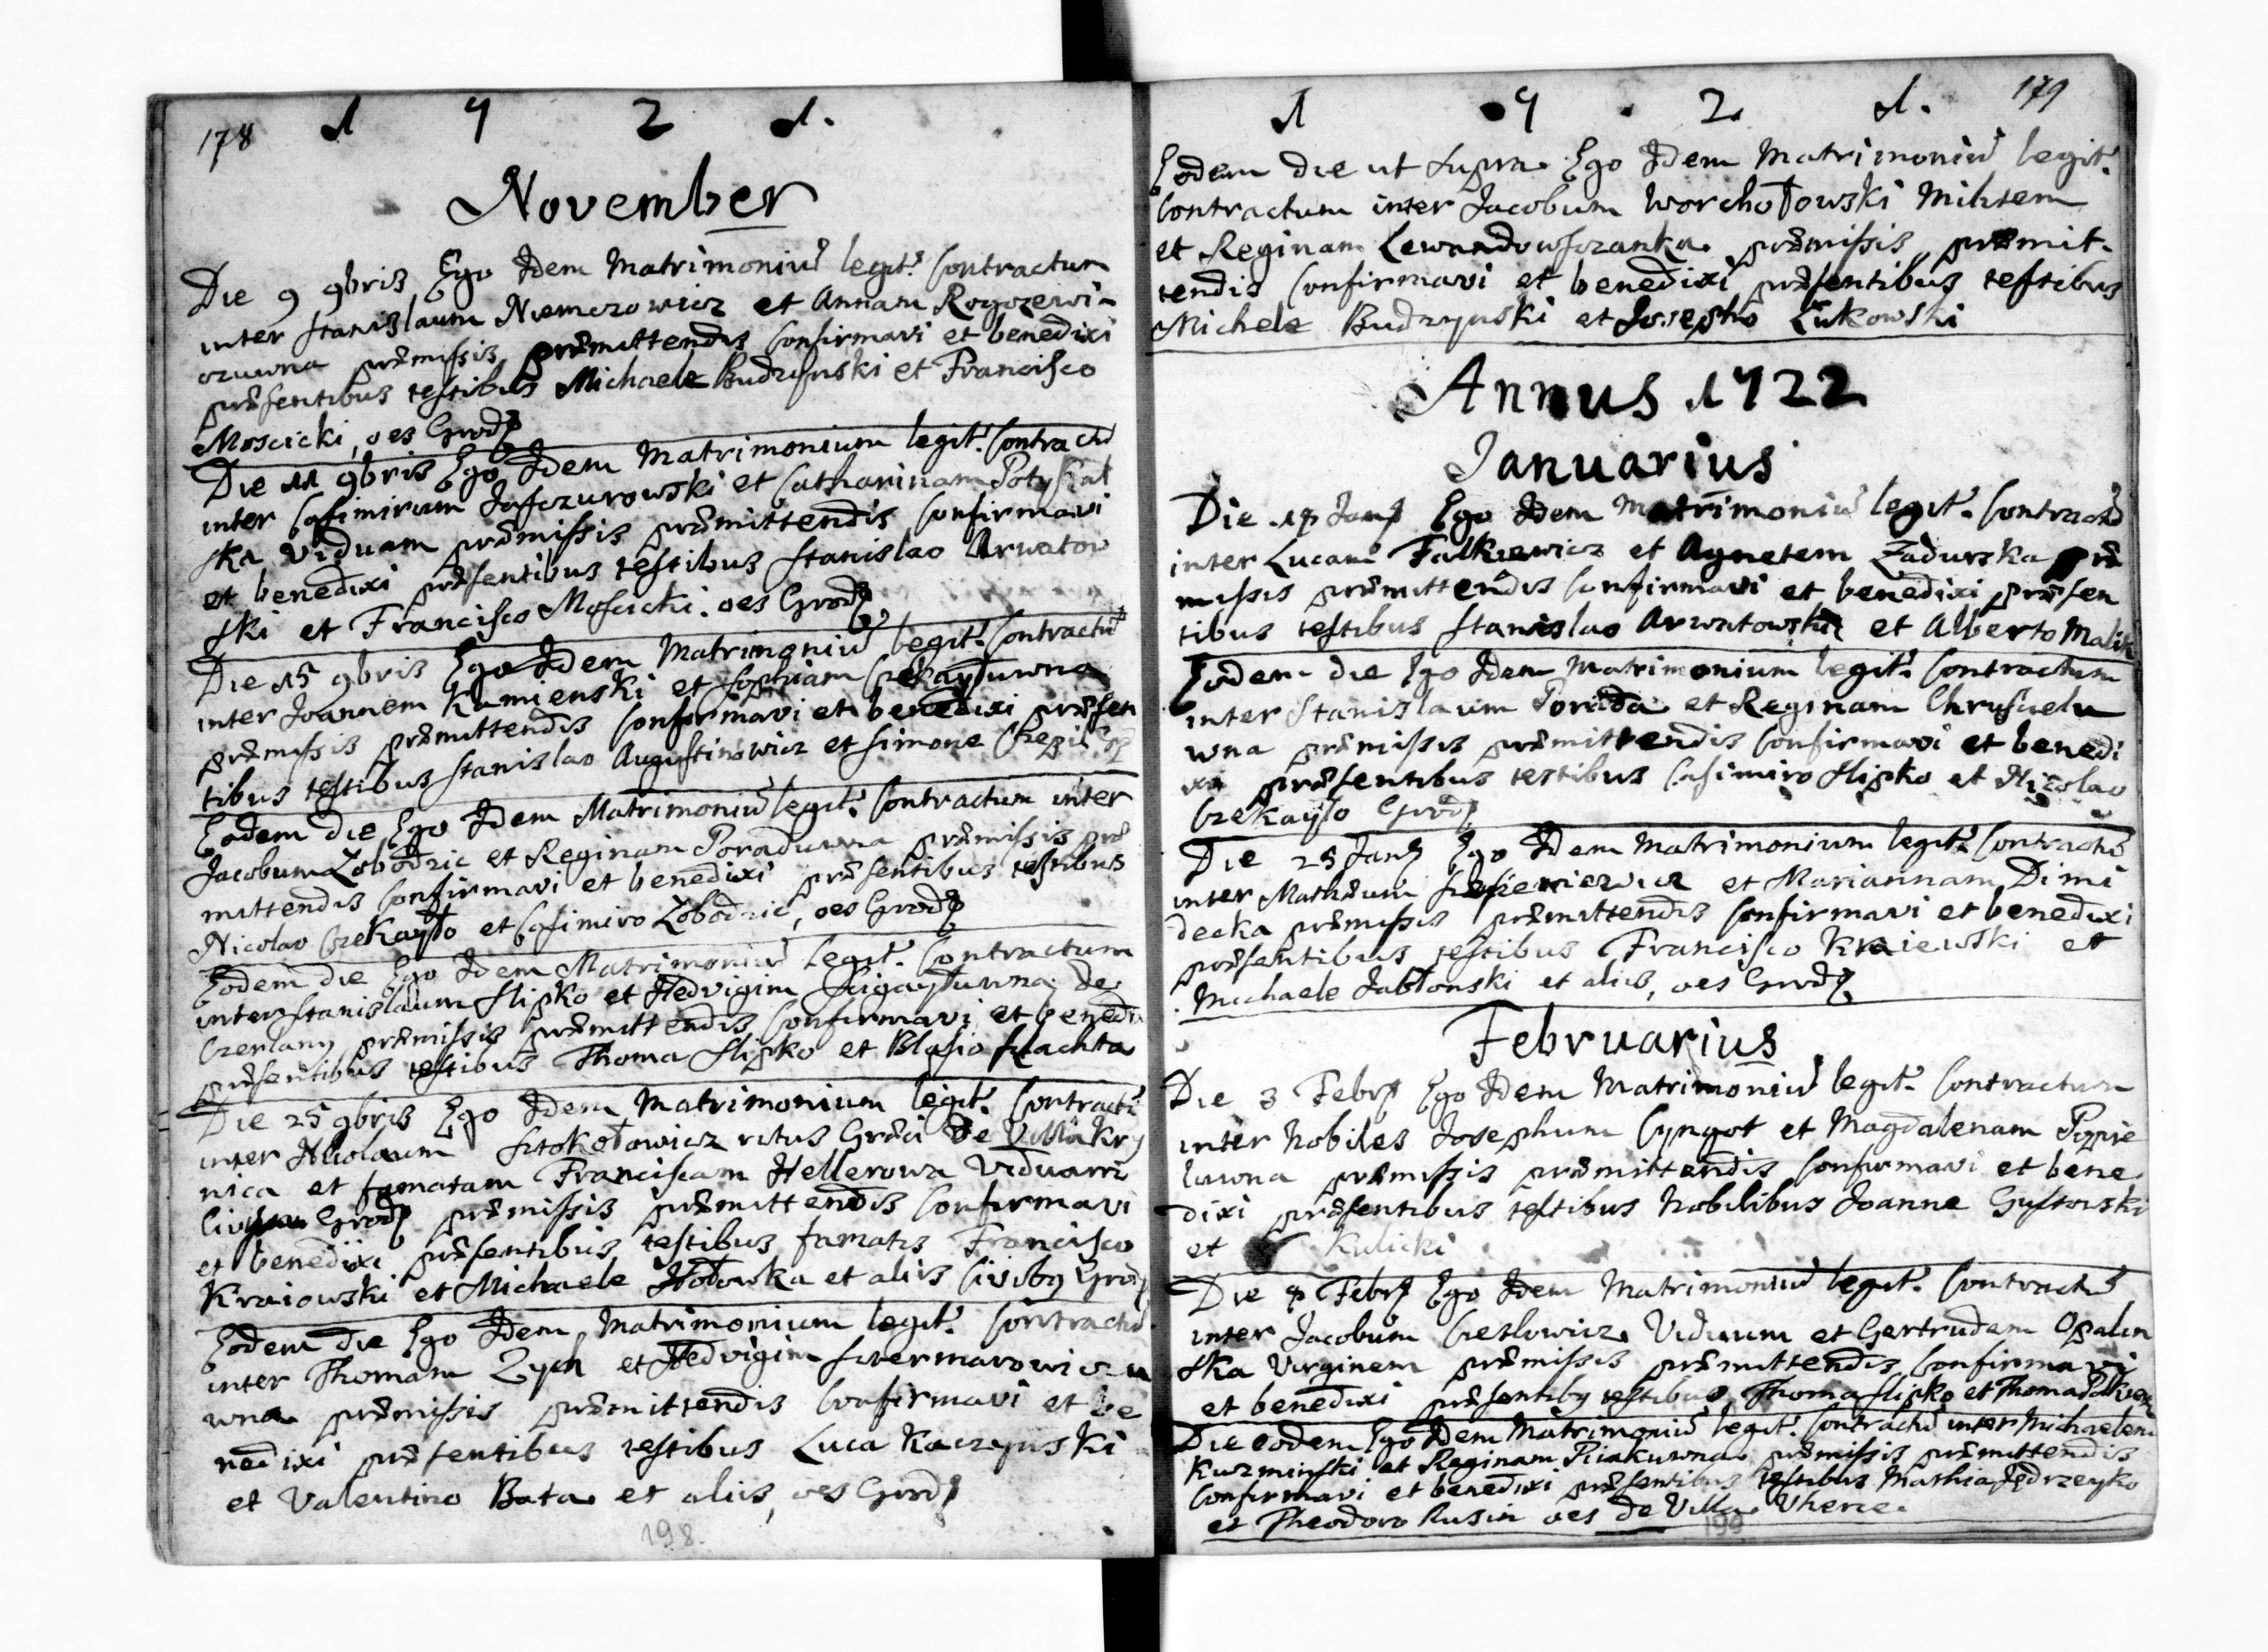 178
1 7 2 1.
November
Die 9 9bris Ego Idem Matrimoniū legit. Contractum
inter Stanislaum Niemczowicz et Annam Rogozewi-
czuwna præmissis præmittendis Confirmavi et benedixi
præsentibus testibus Michaele Budzynski et Francisco
Moscicki, oes Grod
Die 11 9bris Ego Idem Matrimonium legit. Contractū
inter Casimirum Jaszczurowski et Catharinam
ska Viduam præmissis præmittendis Confirmavi
et benedixi præsentibus testibus Stanislao Arwatow
ski et Francisco Moscicki. oes Grod
Die 15 9bris Ego Idem Matrimoniū legit. Contractū
inter Joannem Kamienski et Sophiam Czekayłuwna
præmissis præmittendis Confirmavi et benedixi præsen
tibus testibus Stanislao Augustinowicz et Simone
Eodem die Ego Idem Matrimoniū legit. Contractum inter
Jacobum Zobodzic et Reginam Poraduwna præmissis præ
mittendis Confirmavi et benedixi præsentibus testibus
Nicolao Czekayło et Casimiro Zobodzic, oes Grod
Eodem die Ego Idem Matrimoniū legit. Contractum
inter Stanislaum Slipko et Hedvigim Scigayłuwna de
Czerlany præmissis præmittendis Confirmavi et benedi
præsentibus testibus Thoma Slipko et Blasio Szlachta
Die 25 9bris Ego Idem Matrimonium legit. Contractū
inter Nicolaum Szokołowicz ritus Græci de Villa Kry
nica et famatam Franciscam Hellerowa Viduam
Grod præmissis præmittendis Confirmavi
et benedixi præsentibus testibus famatis Francisco
Kraiowski et Michaele Hołowka et aliis Civibg Grod
Eodem die Ego Idem Matrimonium legit. Contractū
inter Thomam Zych et Hedvigim
wna præmissis præmittendis Confirmavi et be
nedixi præsentibus testibus Luca Kaczynski
et Valentino Bata et aliis, oes Grod
198.
179
1 7 2 1.
Eodem die ut supra Ego Idem Matrimoniū legit.
Contractum inter Jacobum Worchołowski Militem
et Reginam Lewandowszanka præmissis præmit-
tendis Confirmavi et benedixi præsentibus testibus
Michele Budzynski et Josepho Łukowski
Annus 1722
Ianuarius
Die Ego Idem Matrimoniū legit. Contractū
inter Lucam Falkiewicz et Agnetem Zadurska præ
missis præmittendis Confirmavi et benedixi præsen
tibus testibus Stanislao Arwatowski et Alberto Malik
Eodem die Ego Idem Matrimonium legit. Contractum
inter Stanislaum Porada et Reginam Chruscielu
wna præmissis præmittendis Confirmavi et benedi
xi præsentibus testibus Casimiro Slipko et Nicolao
Czekayło Grod
Die 25 Jan Ego Idem Matrimonium legit. Contractū
inter Mathæum et Mariannam Dimi
decka præmissis præmittendis Confirmavi et benedixi
præsentibus testibus Francisco Kraiewski et
Michaele Jabłonski et aliis, oes Grod
Februarius
Die 3 Febr Ego Idem Matrimoniū legit. Contractum
inter Nobiles Josephum Cyngot et Magdalenam Popie
luwna præmissis præmittendis Confirmavi et bene
dixi præsentibus testibus Nobilibus Joanne Gustowski
et Kulicki
Die Febr Ego Idem Matrimoniū legit. Contractū
inter Jacobum Cieslowicz Viduum et Gertrudam Opalin
ska Virginem præmissis præmittendis Confirmavi
et benedixi præsentibg testibus Thoma Slipko et Thoma
Die eodem Ego Idem Matrimoniū legit. Contractū inter Michaelem
Kuzminski et Reginam Piiakuwna præmissis præmittendis
Confirmavi et benedixi præsentibus testibus Mathia Jędrzeyko
et Theodoro Rusin oes de Villa Vherce.
199